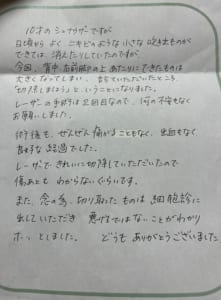 10才の ミニシュナウザーですが
日頃から よく ニキビのような 小さな 吹き出ものが
できては 消えたりしていたのですが
今回、背中 左前脚の上 あたりに できたものは
大きく なってしまい、 診ていただいたところ、
切除しましょう と いうことになりました。
レーザーの 手術は 2回目なので、 何の 不安もなく
お願いしました。
術後も、 ぜんぜん 痛がることもなく、 出血もなく
良好な 経過でした。
レーザーで きれいに 切除していただいたので
傷あとも わからないぐらいです。
また、 念の為、 切り取った ものは 細胞診に
出していただき 悪性ではない ことがわかり
ホッ としました。 どうも ありがとうございました